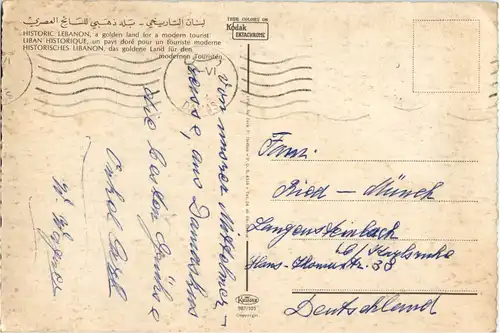 لبنان التاريخي - بلد ذهبي للسائح العصري
HISTORIC LEBANON, a golden land for a modern tourist
LIBAN HISTORIQUE, un pays doré pour un touriste moderne
HISTORISCHES LIBANON, das goldene Land für den
modernen Touristen
TRUE COLORS ON
Kodak
EKTACHROME
VI
Von unserer Mittelmeer-
reise, aus Damaskus
die besten Grüsse
Onkel
Fam.
Ried - Münch
Langensteinbach
b/ Karlsruhe
Hans-Thomastr. 33
Deutschland
Kruger
987/101
Copyright